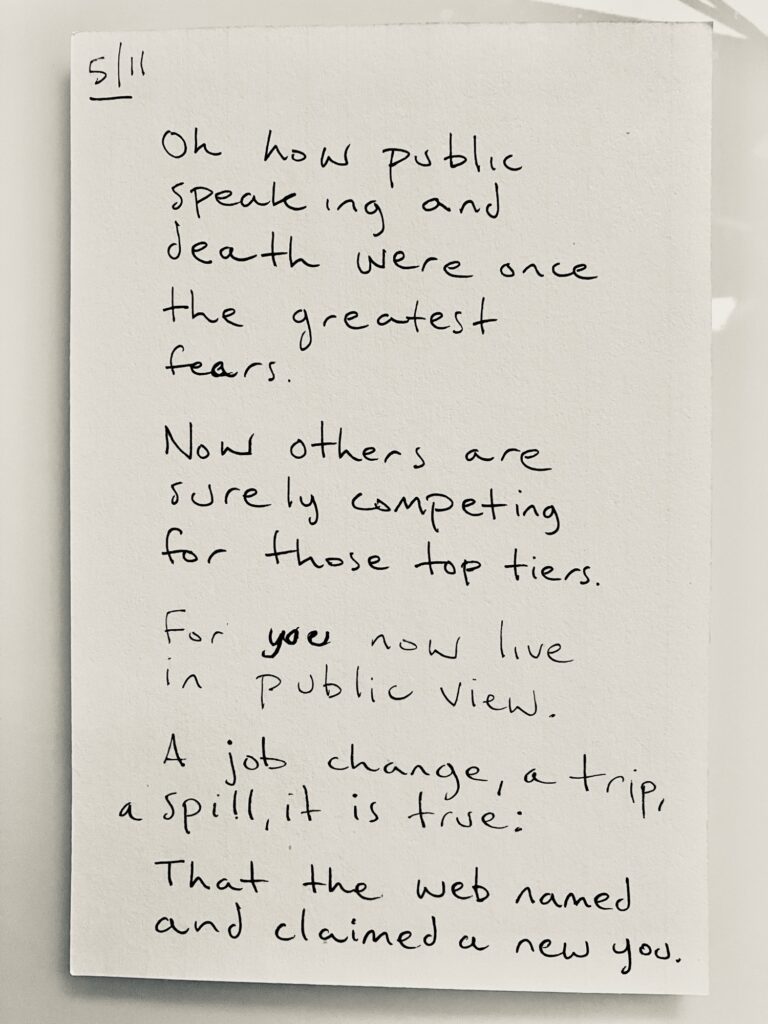 5/11
Oh how public
speaking and
death were once
the greatest
fears.
Now others are
surely competing
for those top tiers.
For you now live
in public view.
A job change, a trip,
a spill, it is true:
That the web named
and claimed a new you.